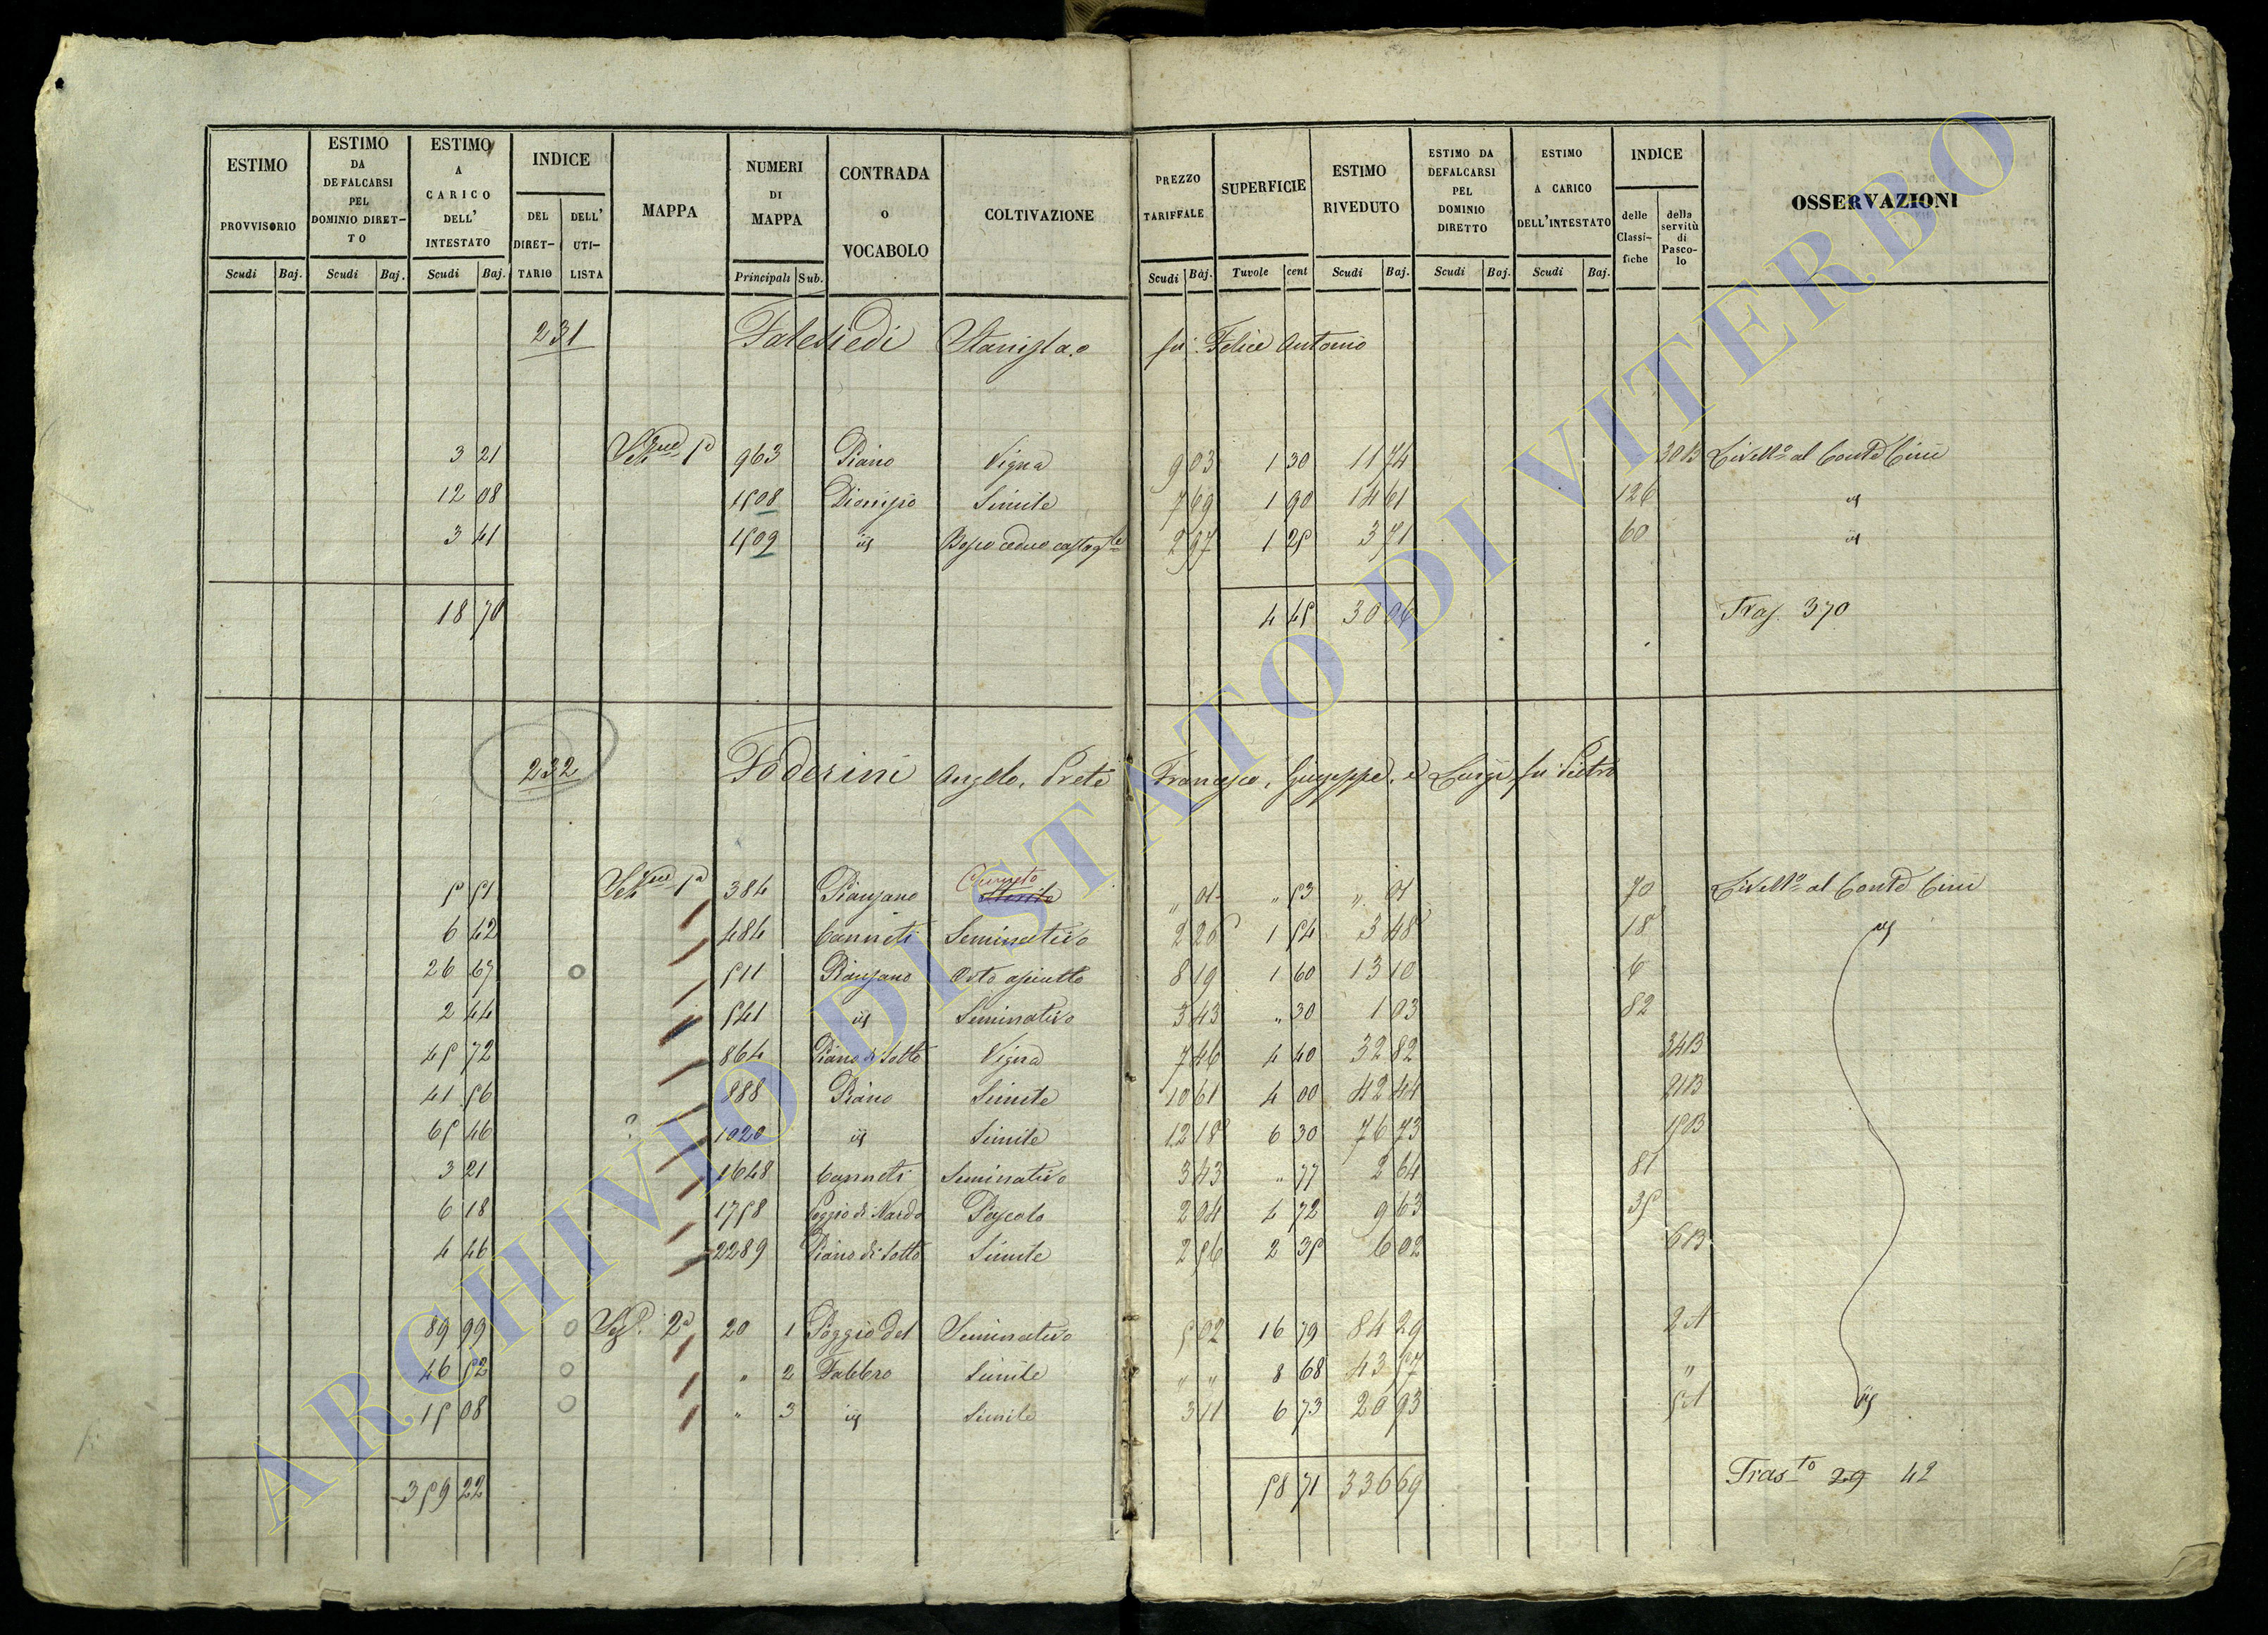 ESTIMO PROVVISORIO Scudi Baj.
ESTIMO DA DEFALCARSI PEL DOMINIO DIRETTO Scudi Baj.
ESTIMO A CARICO DELL' INTESTATO Scudi Baj.
INDICE DEL DIRETTARIO DELL' UTILISTA
MAPPA
NUMERI DI MAPPA Principali Sub.
CONTRADA o VOCABOLO
COLTIVAZIONE
PREZZO TARIFFALE Scudi Baj.
SUPERFICIE Tuvole cent
ESTIMO RIVEDUTO Scudi Baj.
ESTIMO DA DEFALCARSI PEL DOMINIO DIRETTO Scudi Baj.
ESTIMO A CARICO DELL'INTESTATO Scudi Baj.
INDICE delle Classifiche della servitù di Pascolo
OSSERVAZIONI
231 Falesiedi Stanislao fu Felice Antonio
3 21 Sezne 1a 963 Piano Vigna 9 03 1 30 11 74 30B Livello al Conte Cini
12 08 1508 Dionisio Simile 7 69 1 90 14 61 126 id
3 41 1509 id Bosco ceduo castagle 2 97 1 25 3 71 60 id
18 70 4 45 30 06 Tras. 370
232 Foderini Angelo, Prete Francesco, Giuseppe, e Luigi fu Pietro
5 51 Sezne 1a 384 Pianzano Canneto " 01 " 53 " 01 70 Livello al Conte Cini
6 42 484 Canneti Seminativo 2 26 1 54 3 48 18 id
26 67 511 Pianzano Orto asciutto 8 19 1 60 13 10 6
2 44 541 id Seminativo 3 43 " 30 1 03 82
45 72 864 Piano di sotto Vigna 7 46 4 40 32 82 34B
41 56 888 Piano Simile 10 61 4 00 42 44 21B
65 46 ? 1020 id Simile 12 18 6 30 76 73 15B
3 21 1648 Canneti Seminativo 3 43 " 77 2 64 81
6 18 1758 Poggio di Nardo Pascolo 2 04 4 72 9 63 35
4 46 2289 Piano di sotto Simile 2 56 2 35 6 02 6B
89 99 Sez. 2a 20 1 Poggio del Seminativo 5 02 16 79 84 29 2A
46 52 " 2 Fabbro Simile " " 8 68 43 57 "
15 08 " 3 id Simile 3 11 6 73 20 93 5A id
359 22 58 71 336 69 Trasto 29 42
ARCHIVIO DI STATO DI VITERBO